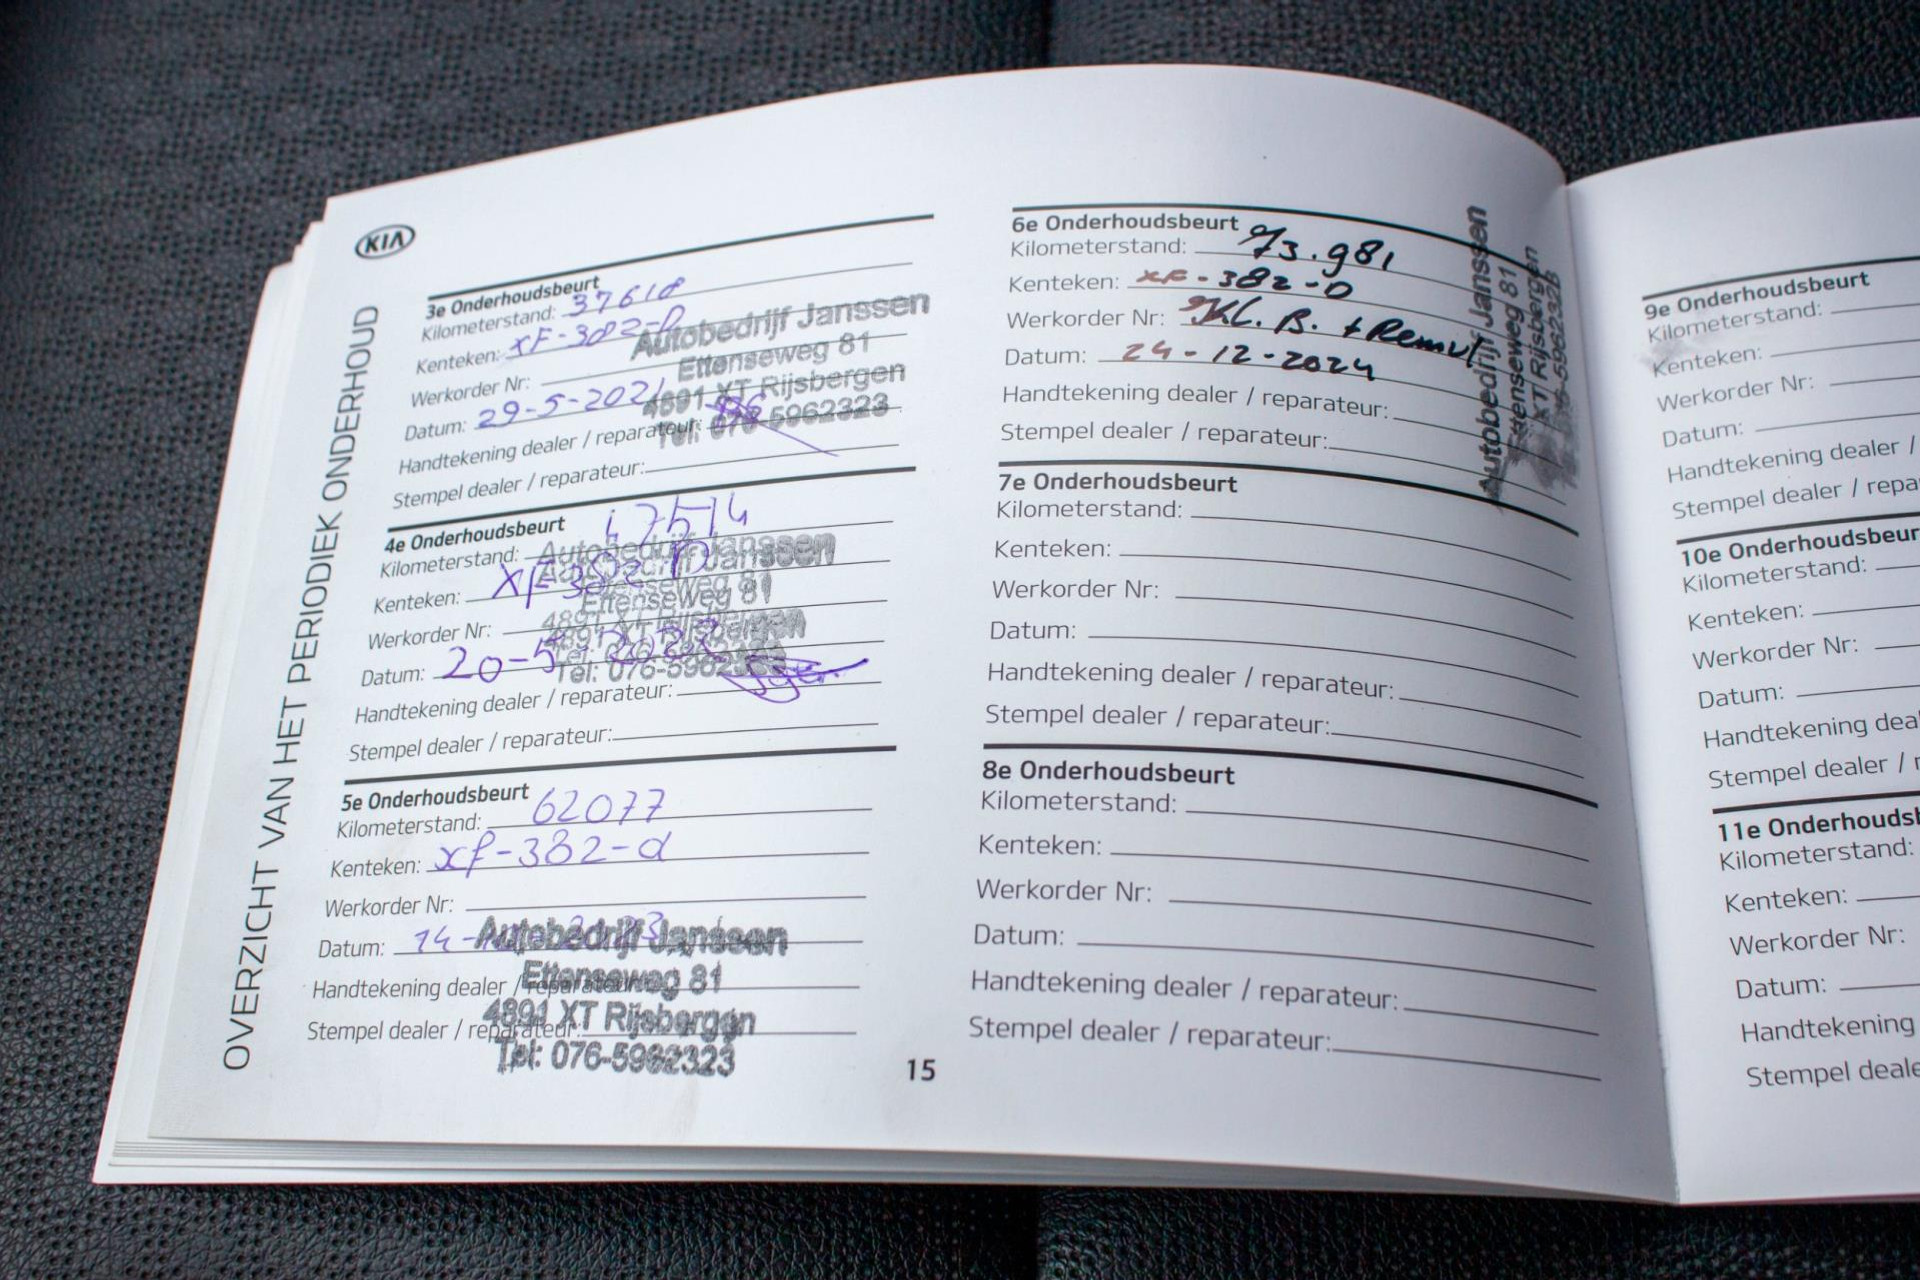 KIA
OVERZICHT VAN HET PERIODIEK ONDERHOUD
3e Onderhoudsbeurt
Kilometerstand: 37618
Kenteken: XF-382-D
Werkorder Nr:
Datum: 29-5-2021
Handtekening dealer / reparateur:
Stempel dealer / reparateur:
Autobedrijf Janssen
Ettenseweg 81
4891 XT Rijsbergen
Tel: 076-5962323
4e Onderhoudsbeurt
Kilometerstand: 47514
Kenteken: XF-382-D
Werkorder Nr:
Datum: 20-5-2022
Handtekening dealer / reparateur:
Stempel dealer / reparateur:
Autobedrijf Janssen
Autobedrijf Janssen
Ettenseweg 81
4891 XT Rijsbergen
4891 XT Rijsbergen
Tel: 076-5962323
Tel: 076-5962323
5e Onderhoudsbeurt
Kilometerstand: 62077
Kenteken: xf-382-d
Werkorder Nr:
Datum: 14-
Handtekening dealer / reparateur:
Stempel dealer / reparateur:
Autobedrijf Janssen
Ettenseweg 81
4891 XT Rijsbergen
Tel: 076-5962323
6e Onderhoudsbeurt
Kilometerstand: 73.981
Kenteken: XF-382-D
Werkorder Nr: KL. B. + Remvl
Datum: 24-12-2024
Handtekening dealer / reparateur:
Stempel dealer / reparateur:
Autobedrijf Janssen
Ettenseweg 81
XT Rijsbergen
076-5962323
7e Onderhoudsbeurt
Kilometerstand:
Kenteken:
Werkorder Nr:
Datum:
Handtekening dealer / reparateur:
Stempel dealer / reparateur:
8e Onderhoudsbeurt
Kilometerstand:
Kenteken:
Werkorder Nr:
Datum:
Handtekening dealer / reparateur:
Stempel dealer / reparateur:
15
9e Onderhoudsbeurt
Kilometerstand:
Kenteken:
Werkorder Nr:
Datum:
Handtekening dealer /
Stempel dealer / repa
10e Onderhoudsbeur
Kilometerstand:
Kenteken:
Werkorder Nr:
Datum:
Handtekening deal
Stempel dealer / r
11e Onderhoudsb
Kilometerstand:
Kenteken:
Werkorder Nr:
Datum:
Handtekening
Stempel deale